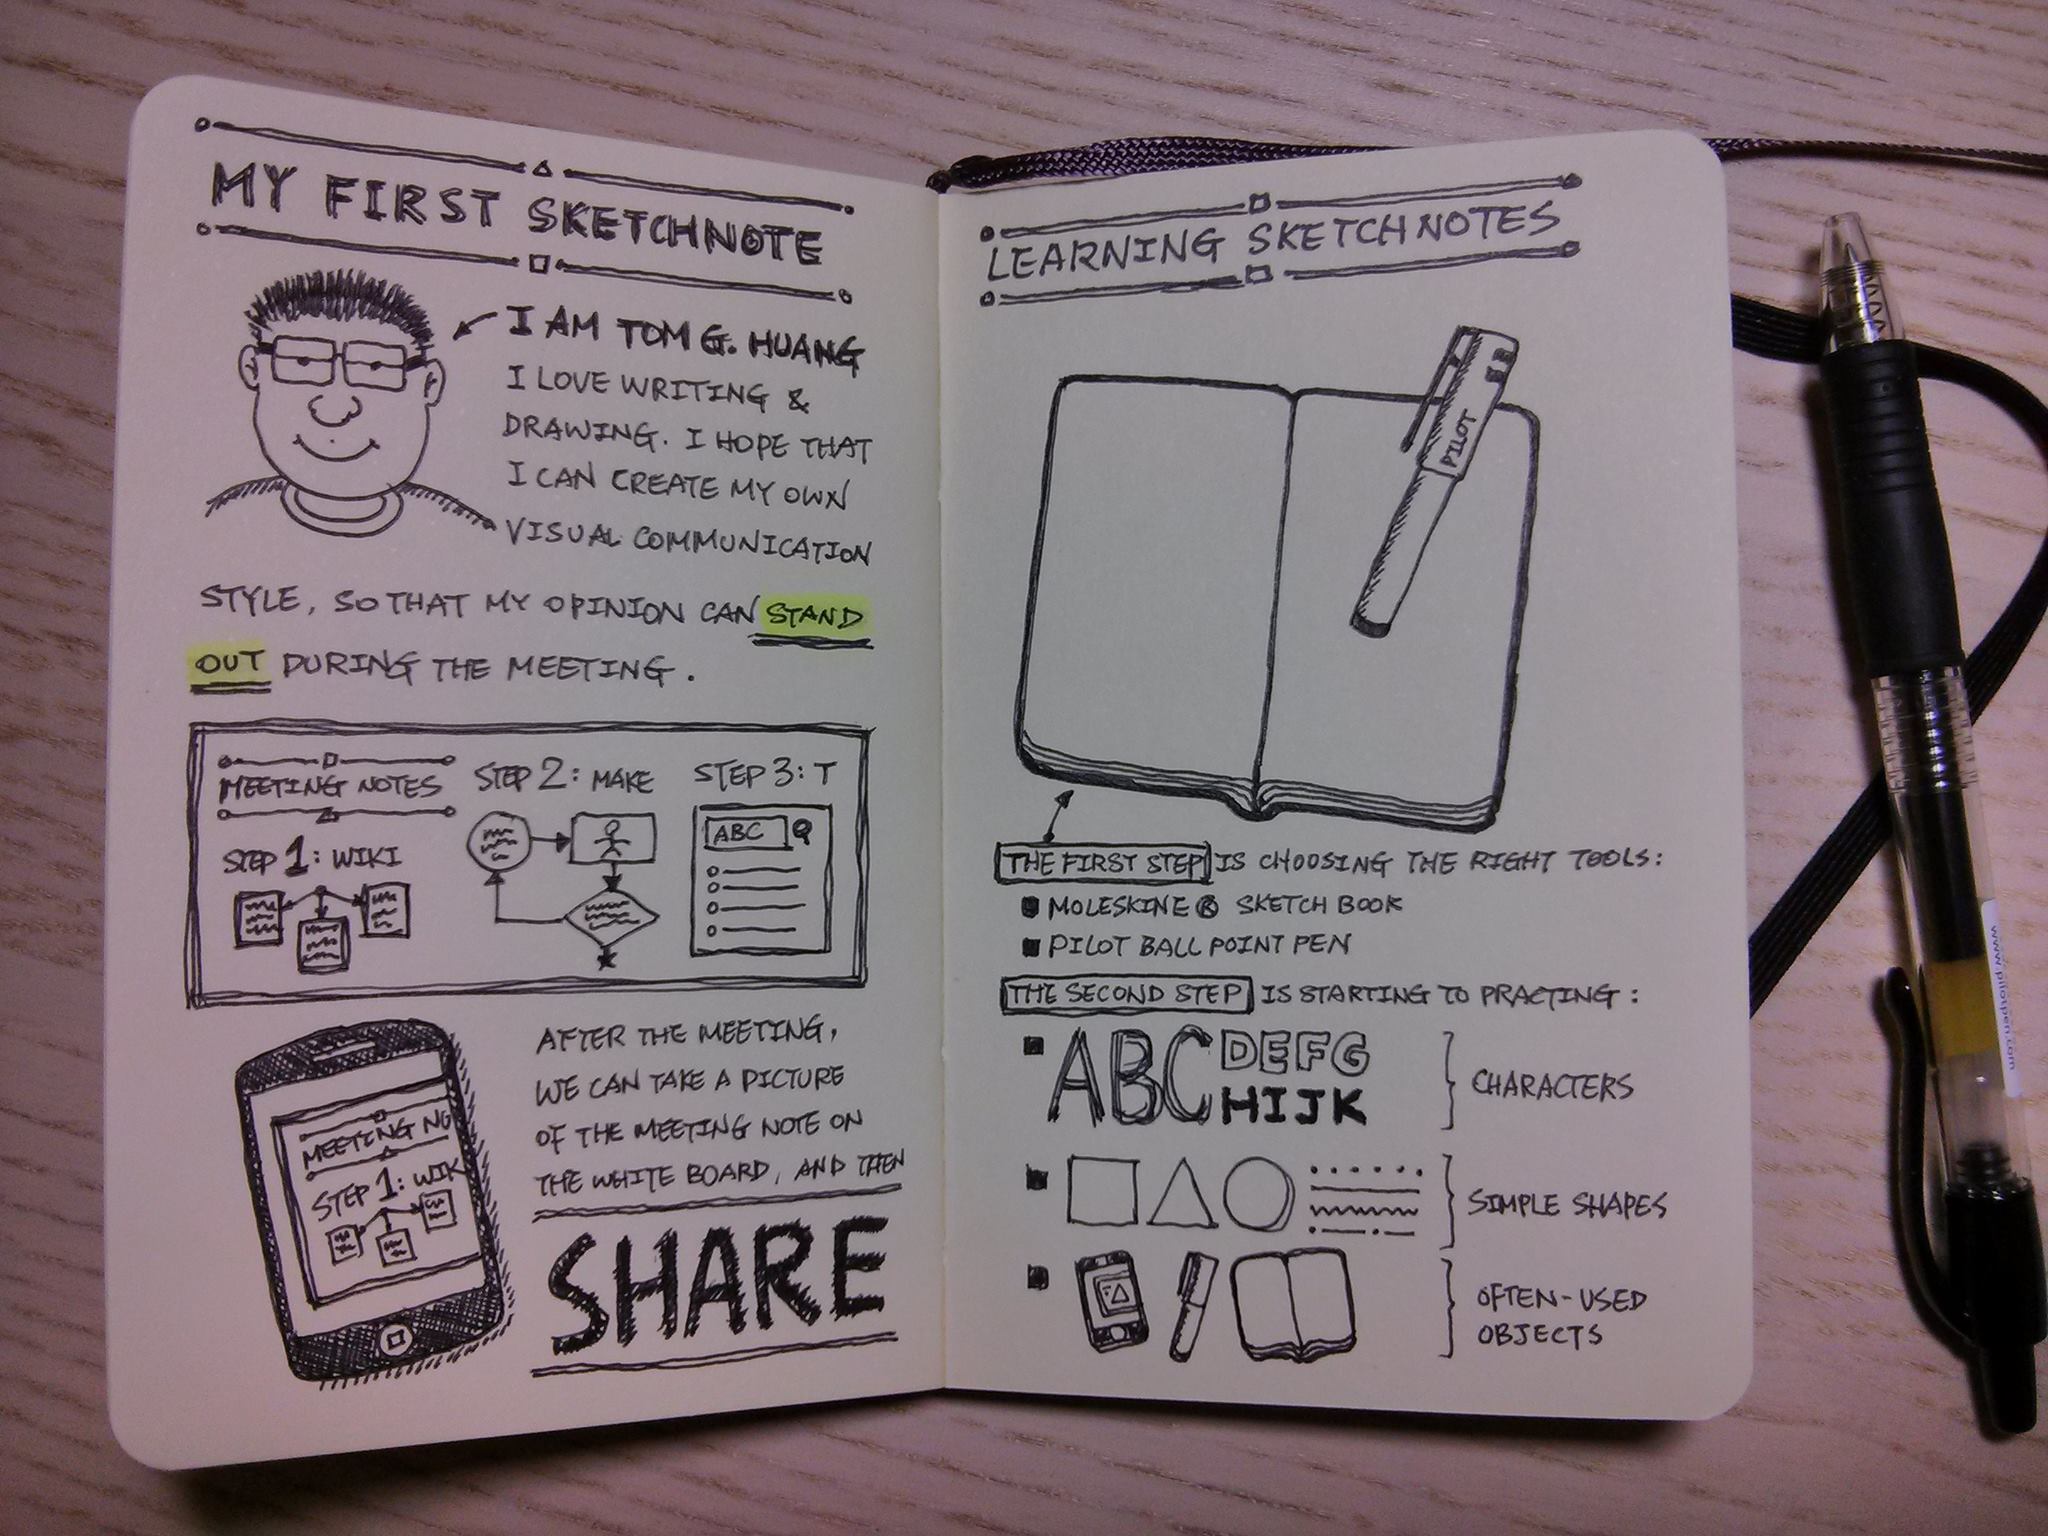 MY FIRST SKETCHNOTE
I AM TOM G. HUANG
I LOVE WRITING &
DRAWING. I HOPE THAT
I CAN CREATE MY OWN
VISUAL COMMUNICATION
STYLE, SO THAT MY OPINION CAN STAND
OUT DURING THE MEETING.
MEETING NOTES
STEP 1: WIKI
STEP 2: MAKE
STEP 3: T
ABC
MEETING NO
STEP 1: WIK
AFTER THE MEETING,
WE CAN TAKE A PICTURE
OF THE MEETING NOTE ON
THE WHITE BOARD, AND THEN
SHARE
LEARNING SKETCHNOTES
PILOT
THE FIRST STEP IS CHOOSING THE RIGHT TOOLS:
MOLESKINE® SKETCH BOOK
PILOT BALL POINT PEN
THE SECOND STEP IS STARTING TO PRACTING:
ABCDEFG
HIJK
CHARACTERS
SIMPLE SHAPES
OFTEN-USED
OBJECTS
www.pilotpen.com